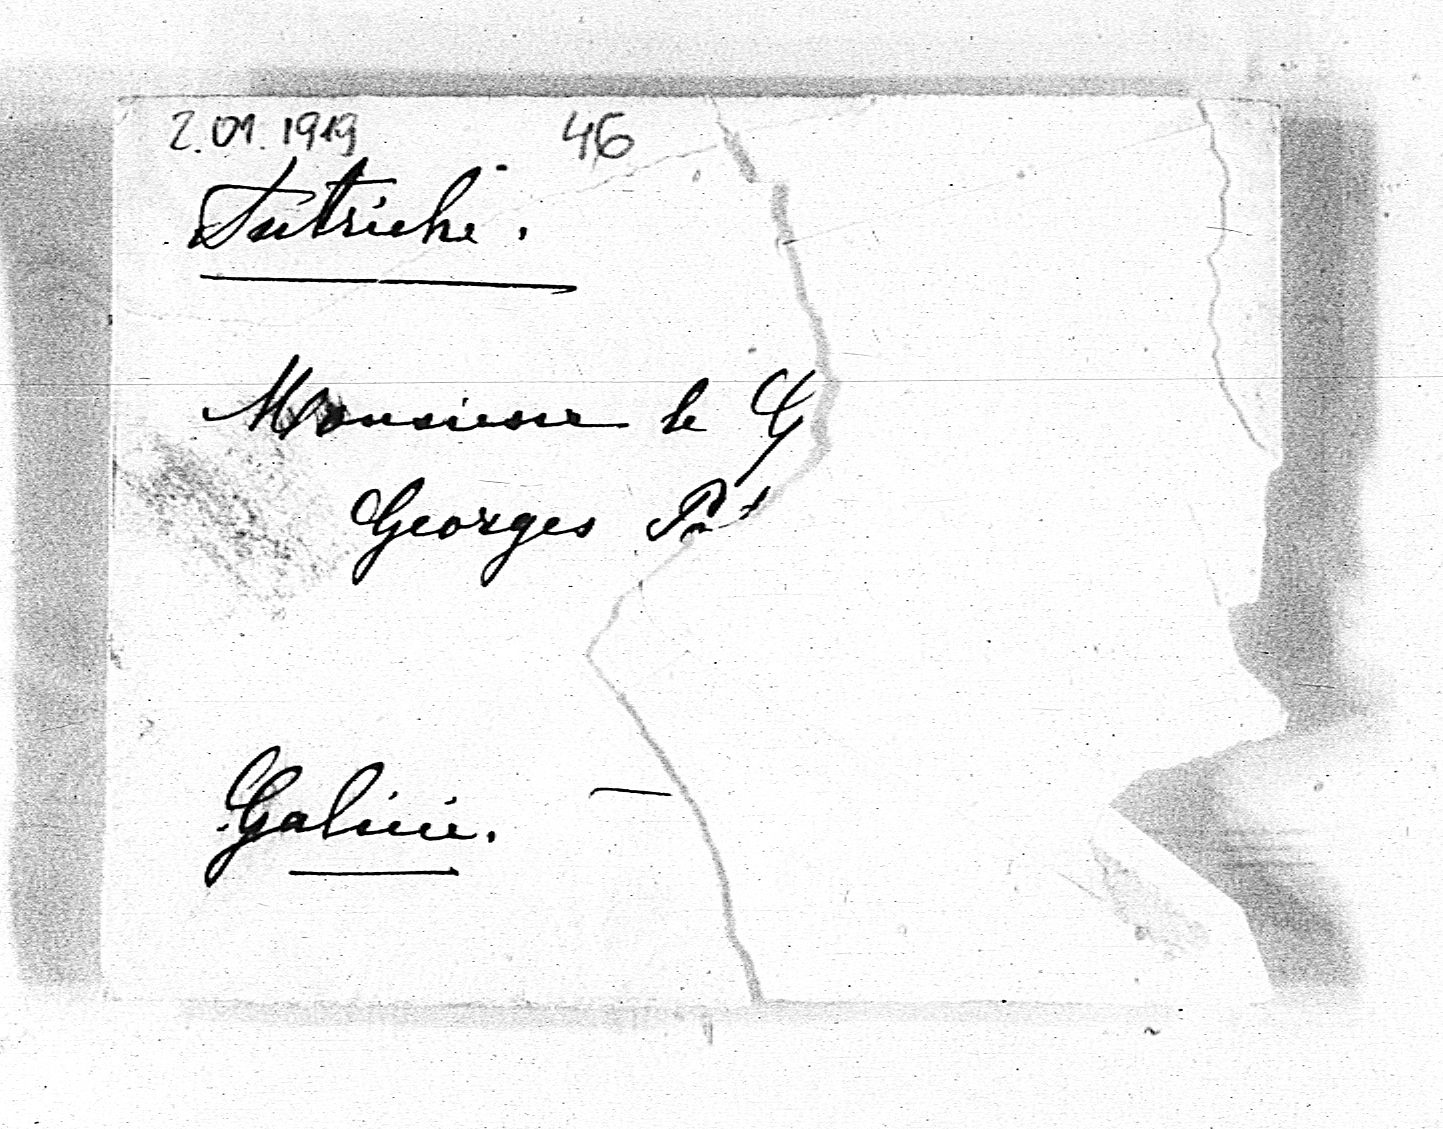 2.01.1919 46
Autriche.
Monsieur le
Georges
Galicie.